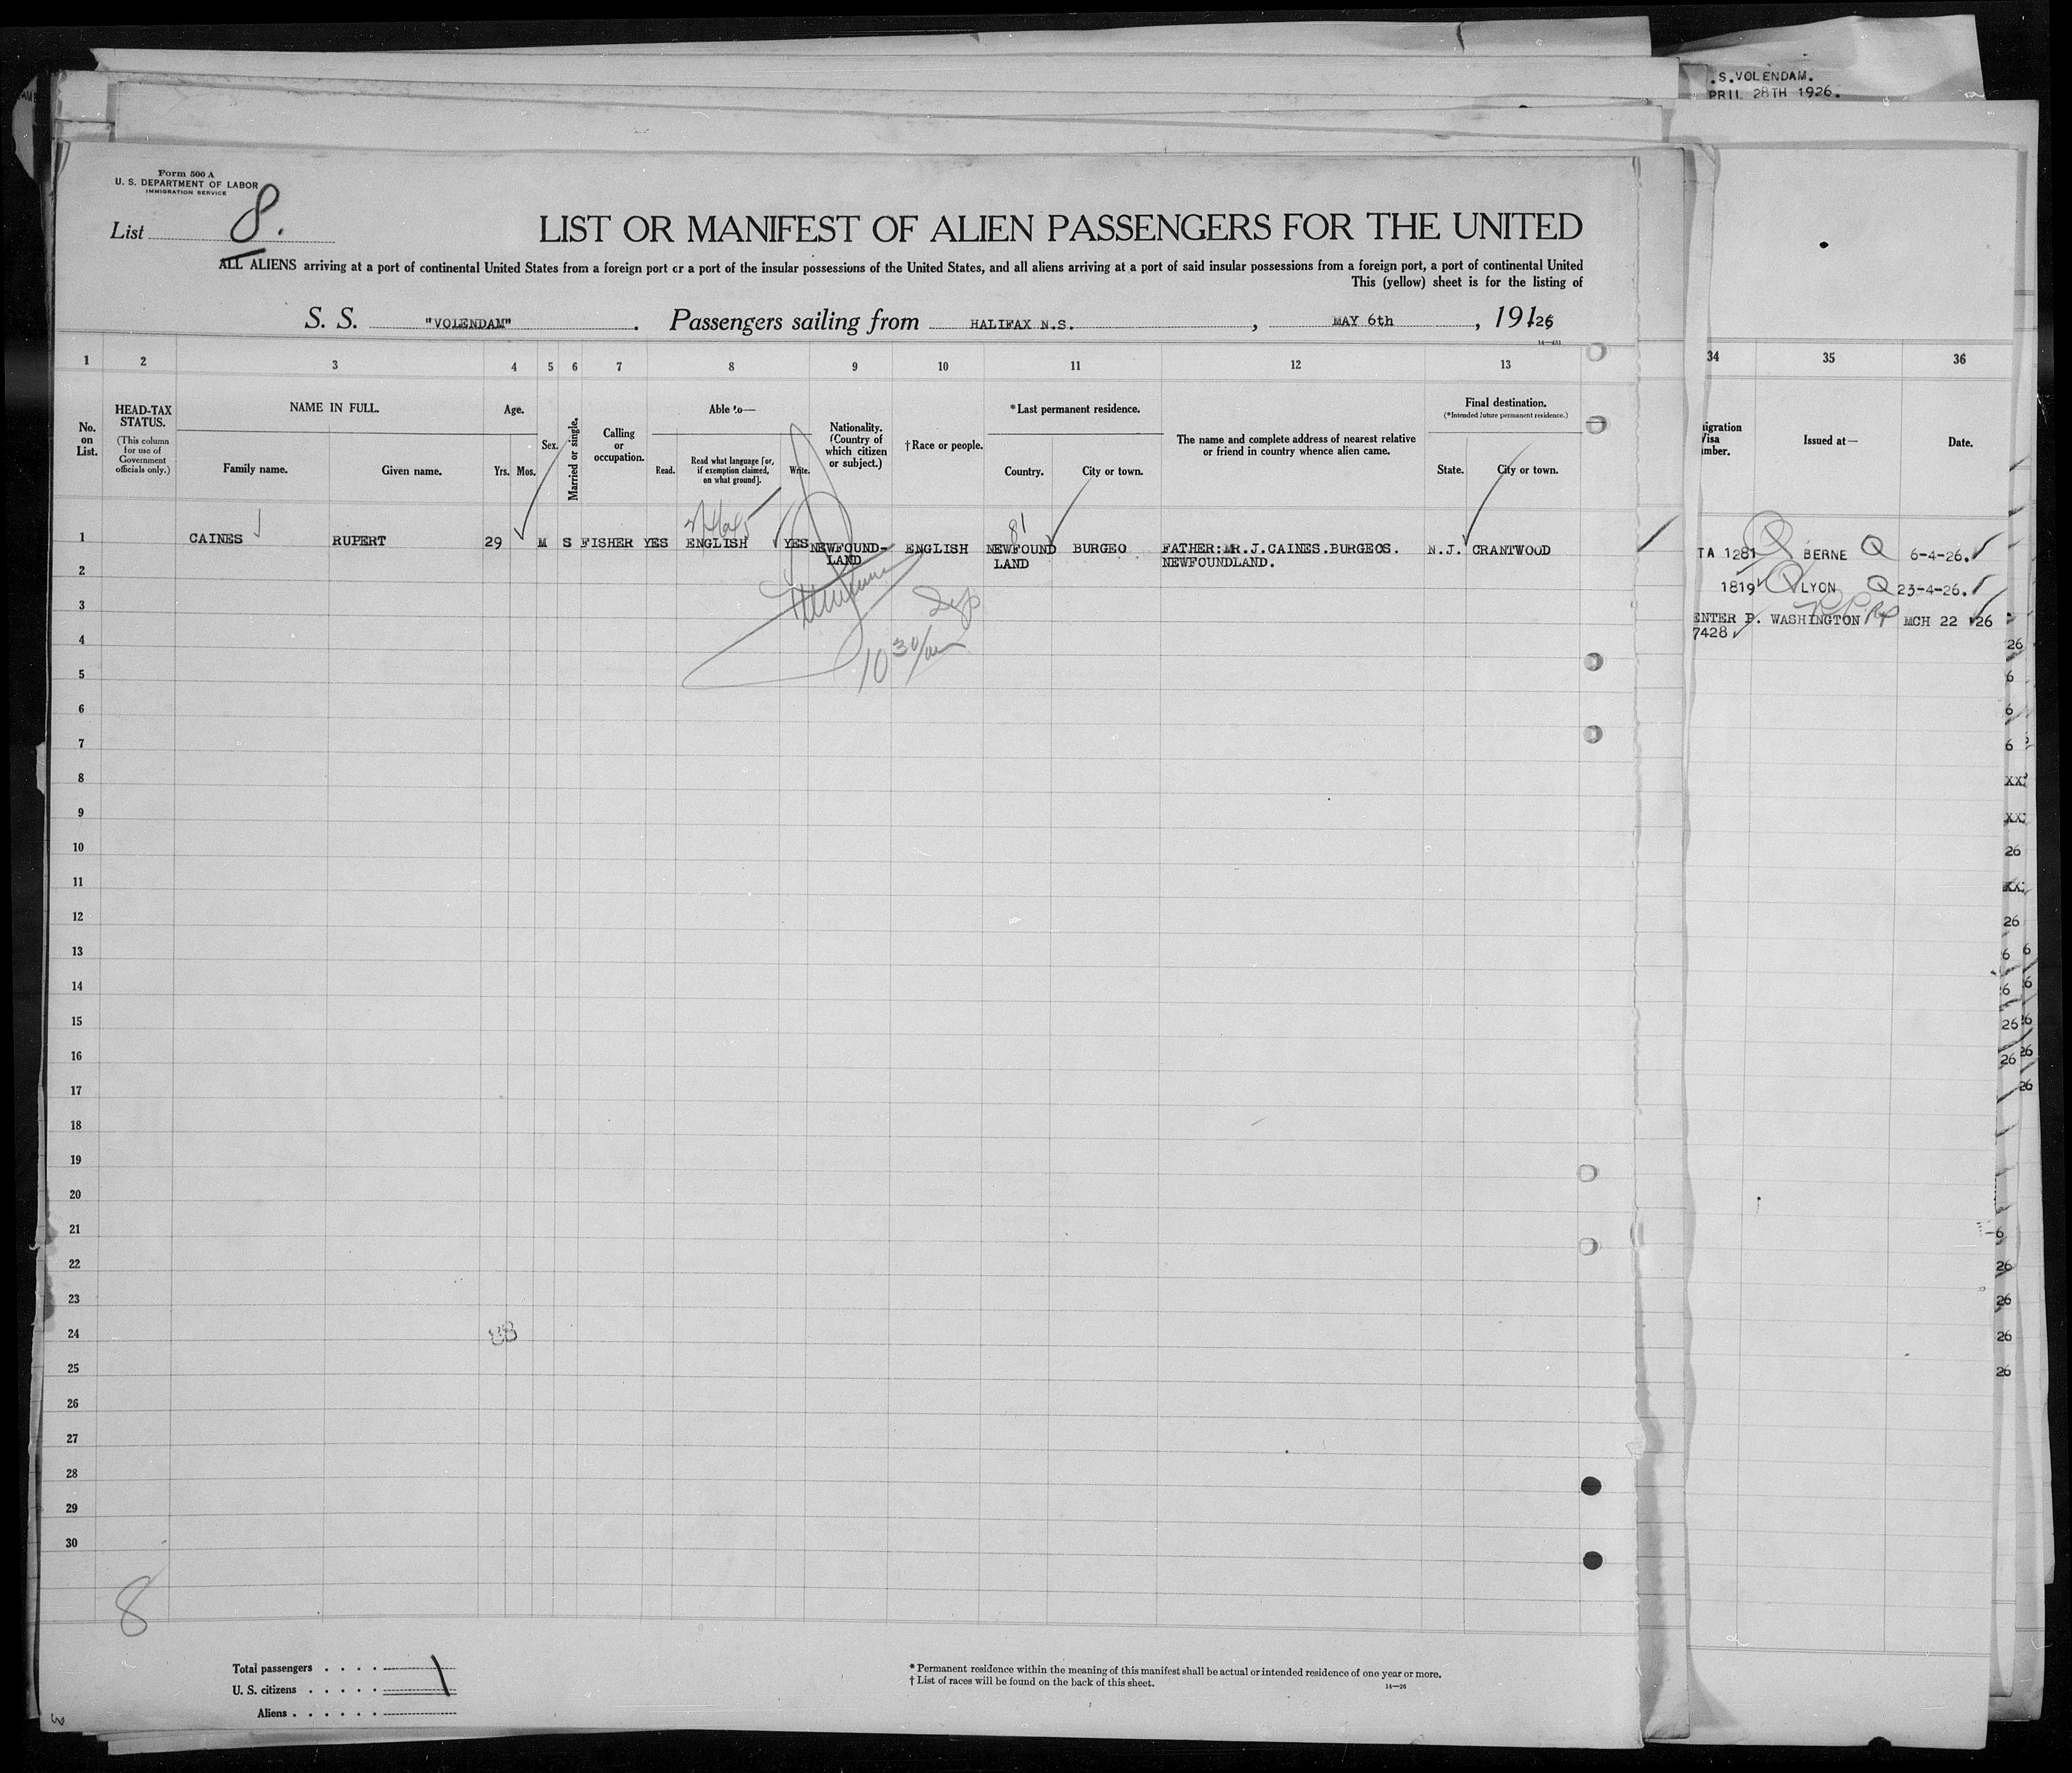 S.S.VOLENDAM.
APRIL 28TH 1926.
Form 500 A
U. S. DEPARTMENT OF LABOR
IMMIGRATION SERVICE
List 8.
LIST OR MANIFEST OF ALIEN PASSENGERS FOR THE UNITED
ALL ALIENS arriving at a port of continental United States from a foreign port or a port of the insular possessions of the United States, and all aliens arriving at a port of said insular possessions from a foreign port, a port of continental United
This (yellow) sheet is for the listing of
S. S. "VOLENDAM" . Passengers sailing from HALIFAX N.S. , MAY 6th , 191 26
14—431
1 2 3 4 5 6 7 8 9 10 11 12 13
34 35 36
No. on List.
HEAD-TAX STATUS.
(This column for use of Government officials only.)
NAME IN FULL.
Family name. Given name.
Age.
Yrs. Mos.
Sex.
Married or single.
Calling or occupation.
Able to—
Read. Read what language [or, if exemption claimed, on what ground]. Write.
Nationality. (Country of which citizen or subject.)
†Race or people.
*Last permanent residence.
Country. City or town.
The name and complete address of nearest relative or friend in country whence alien came.
Final destination.
(*Intended future permanent residence.)
State. City or town.
Issued at— Date.
1 CAINES RUPERT 29 M S FISHER YES ENGLISH YES NEWFOUND-LAND ENGLISH NEWFOUND LAND BURGEO FATHER:MR.J.CAINES.BURGEOS. NEWFOUNDLAND. N.J. CRANTWOOD
81
10 30/am
TA 1281 BERNE Q 6-4-26.
1819 LYON Q 23-4-26.
ENTER P. WASHINGTON MCH 22 26
7428
2
3
4
5
6
7
8
9
10
11
12
13
14
15
16
17
18
19
20
21
22
23
24
25
26
27
28
29
30
8
Total passengers . . . . 1
U. S. citizens . . . . .
Aliens . . . . . .
* Permanent residence within the meaning of this manifest shall be actual or intended residence of one year or more.
† List of races will be found on the back of this sheet.
14—26